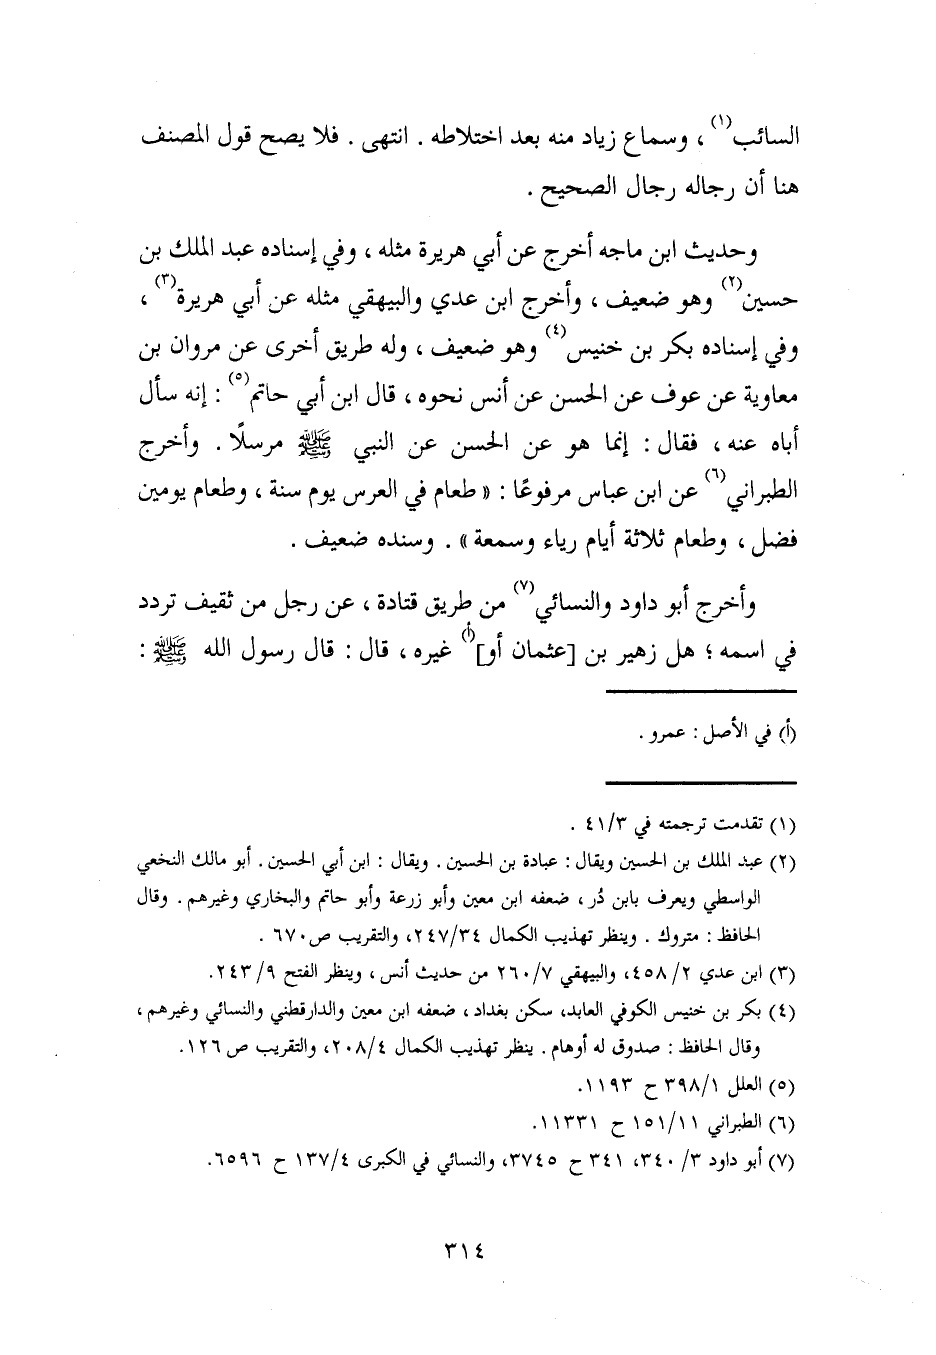 السائب(١) ، وسماع زياد منه بعد اختلاطه . انتهى . فلا يصح قول المصنف
هنا أن رجاله رجال الصحيح .
وحديث ابن ماجه أخرج عن أبي هريرة مثله ، وفي إسناده عبد الملك بن
حسين(٢) وهو ضعيف ، وأخرج ابن عدي والبيهقي مثله عن أبي هريرة(٣) ،
وفي إسناده بكر بن خنيس(٤) وهو ضعيف ، وله طريق أخرى عن مروان بن
معاوية عن عوف عن الحسن عن أنس نحوه ، قال ابن أبي حاتم(٥) : إنه سأل
أباه عنه ، فقال : إنما هو عن الحسن عن النبي ﷺ مرسلًا . وأخرج
الطبراني(٦) عن ابن عباس مرفوعًا : « طعام في العرس يوم سنة ، وطعام يومين
فضل ، وطعام ثلاثة أيام رياء وسمعة » . وسنده ضعيف .
وأخرج أبو داود والنسائي(٧) من طريق قتادة ، عن رجل من ثقيف تردد
في اسمه ؛ هل زهير بن [عثمان أو](أ) غيره ، قال : قال رسول الله ﷺ :
(أ) في الأصل : عمرو .
(١) تقدمت ترجمته في ٤١/٣ .
(٢) عبد الملك بن الحسين ويقال : عبادة بن الحسين . ويقال : ابن أبي الحسين . أبو مالك النخعي
الواسطي ويعرف بابن ذُر ، ضعفه ابن معين وأبو زرعة وأبو حاتم والبخاري وغيرهم . وقال
الحافظ : متروك . وينظر تهذيب الكمال ٢٤٧/٣٤، والتقريب ص ٦٧٠ .
(٣) ابن عدي ٤٥٨/٢، والبيهقي ٢٦٠/٧ من حديث أنس ، وينظر الفتح ٢٤٣/٩.
(٤) بكر بن خنيس الكوفي العابد، سكن بغداد ، ضعفه ابن معين والدارقطني والنسائي وغيرهم ،
وقال الحافظ : صدوق له أوهام . ينظر تهذيب الكمال ٢٠٨/٤، والتقريب ص ١٢٦.
(٥) العلل ٣٩٨/١ ح ١١٩٣.
(٦) الطبراني ١٥١/١١ ح ١١٣٣١.
(٧) أبو داود ٣/ ٣٤٠، ٣٤١ ح ٣٧٤٥، والنسائي في الكبرى ١٣٧/٤ ح ٦٥٩٦.
٣١٤